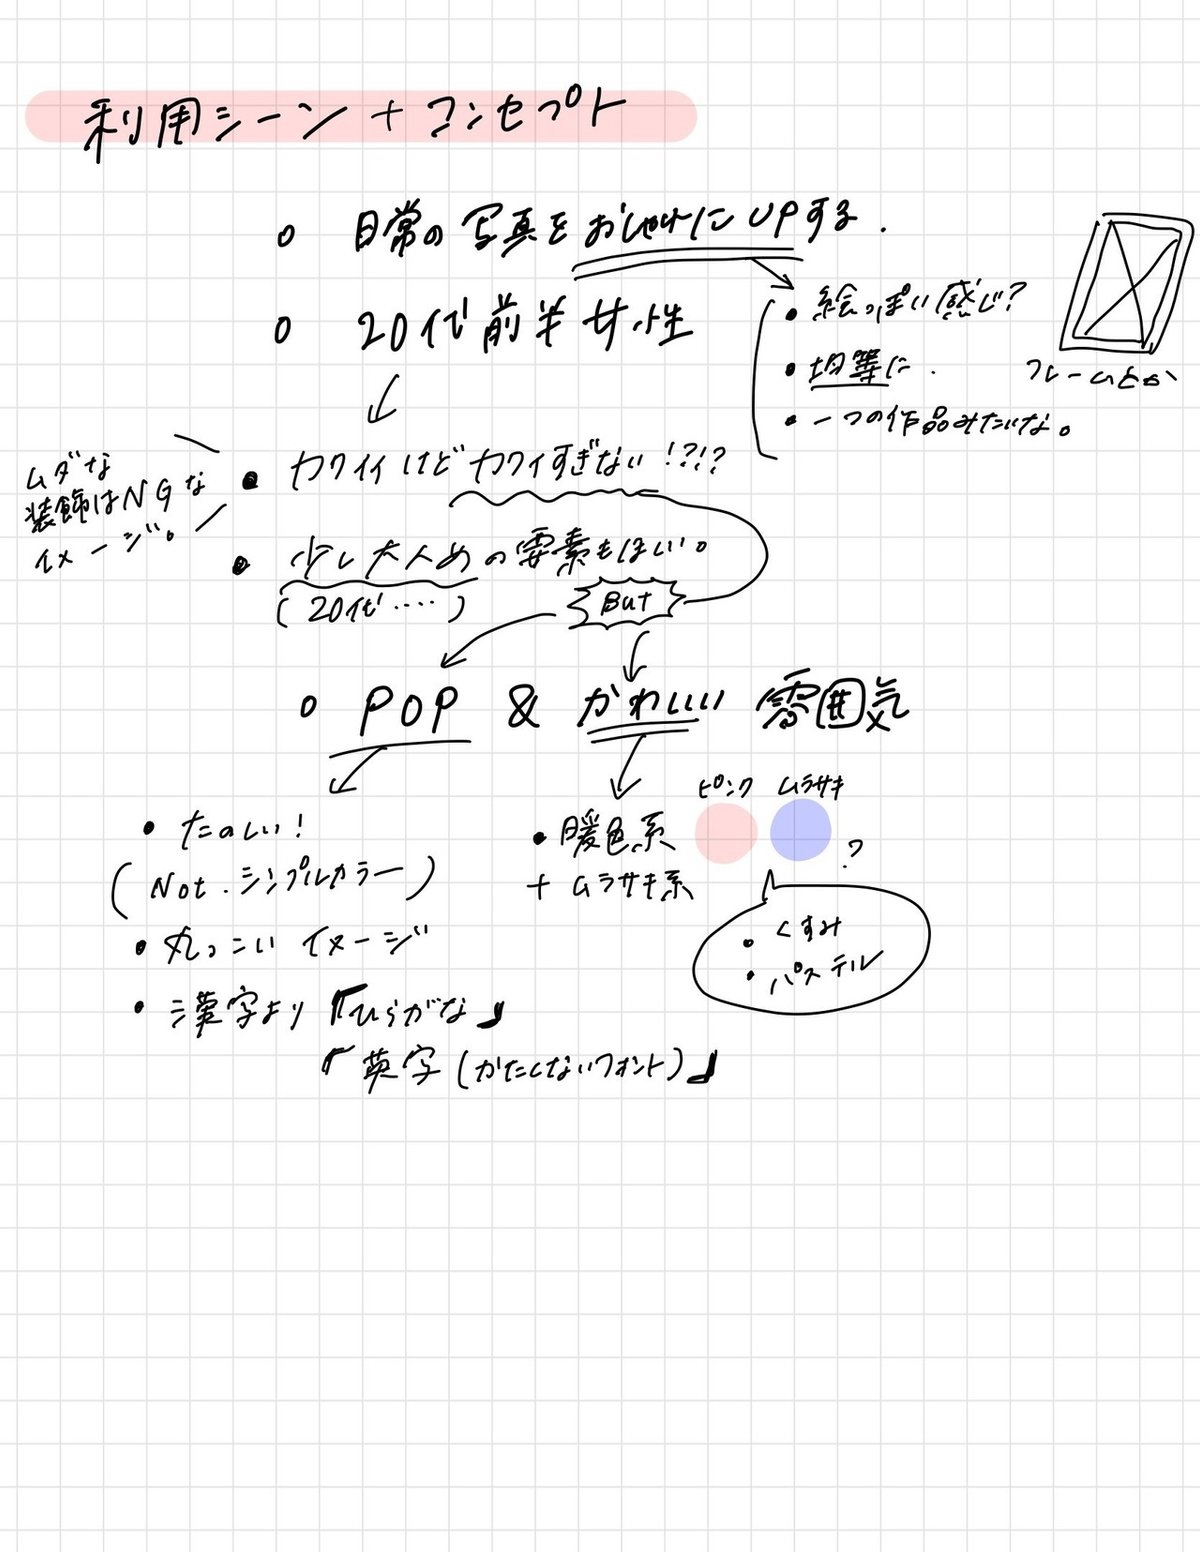 利用シーン + コンセプト
○ 日常の写真をおしゃれにUPする.
・絵っぽい感じ?
・均等に.
・一つの作品みたいな。
フレームとか
○ 20代前半女性
ムダな
装飾はNGな
イメージ。
・カワイイけどカワイすぎない!?!?
・少し大人めの要素もほしい。
(20代....)
But
○ POP & かわいい 雰囲気
・たのしい!
(Not.シンプルカラー)
・丸っこいイメージ
・漢字より『ひらがな』
『英字(かたくないフォント)』
ピンク ムラサキ
・暖色系
+ ムラサキ系
?
・くすみ
・パステル